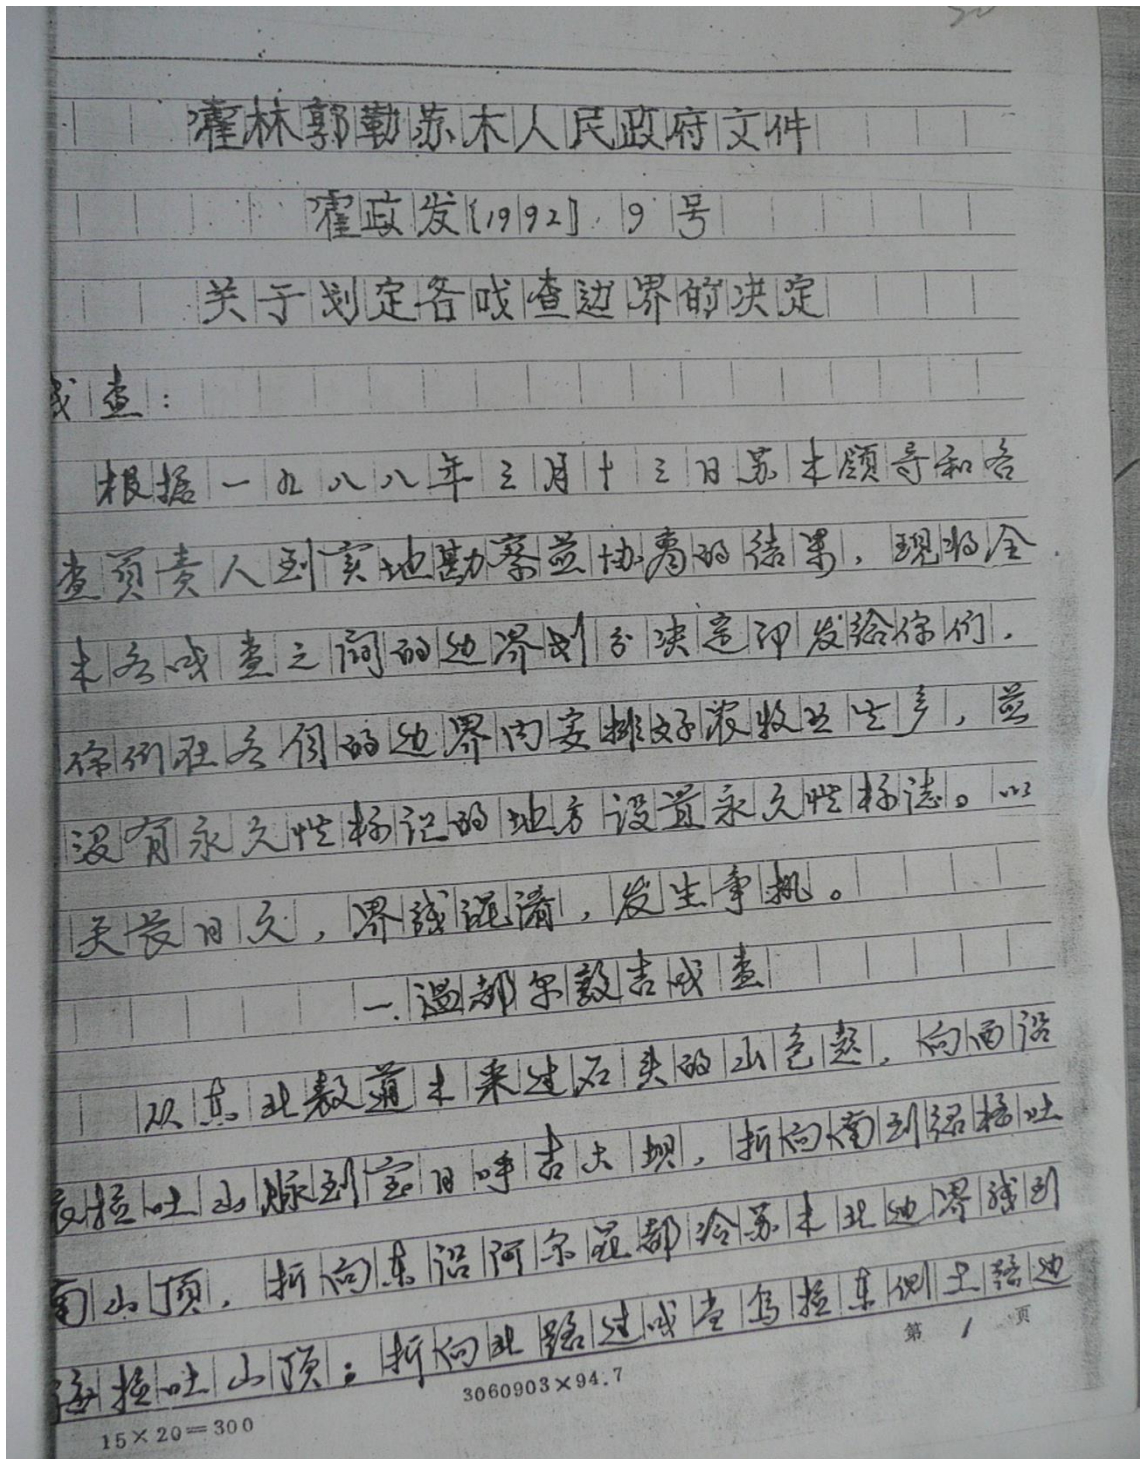 霍林郭勒苏木人民政府文件
霍政发[1992] 9号
关于划定各嘎查边界的决定
嘎查：
根据一九八八年三月十三日苏木领导和各
查负责人到实地勘察并协商的结果，现将全
木各嘎查之间的边界划分决定印发给你们，
你们在各自的边界内安排好农牧业生产，并
没有永久性标记的地方设置永久性标志。以
天长日久，界线混淆，发生争执。
一、温都尔敖吉嘎查
从东北敖道木来过石头的山包起，向西沿
拉吐山脉到宝日呼吉大坝，折向南到
南山顶，折向东沿阿尔昆都冷苏木北边界线到
拉吐山顶；折向北路过嘎查乌拉东侧土路边
第1页
15×20=300
3060903×94.7